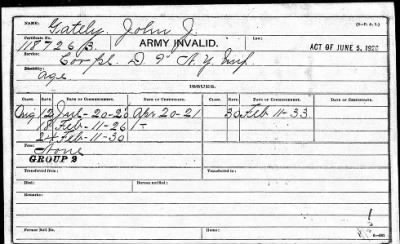 NAME: Gately, John J. (3-P. A. 1.)
Certificate No. ARMY INVALID. Law:
118726 B. ACT OF JUNE 5, 1920
Service: Corpl. D 9" N.Y. Inf.
Disability: age
ISSUES.
CLASS. DATE OF COMMENCEMENT. DATE OF CERTIFICATE. CLASS. DATE OF COMMENCEMENT. DATE OF CERTIFICATE.
Orig 12 Jul-20-20 Apr 20-21 30 Feb 11-33
18 Feb-11-26 1-
24 Feb-11-30
Fees: None
GROUP 2
Transferred from: Transferred to:
Died: Bureau notified:
Former Roll No. Home: